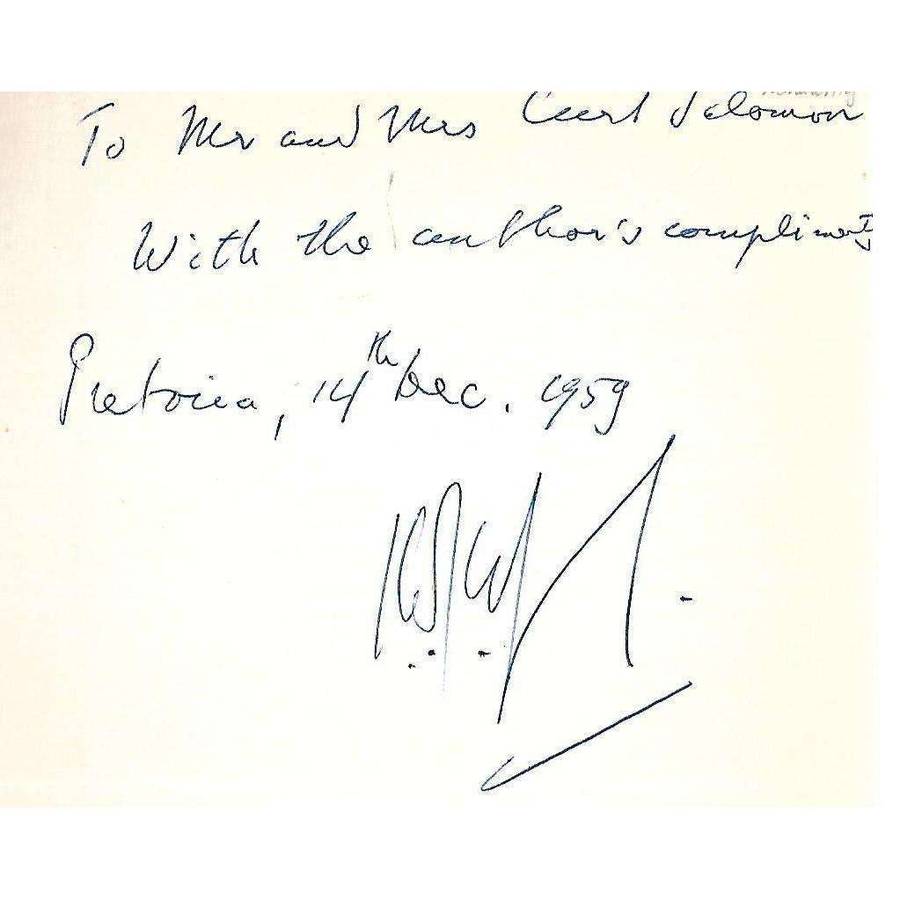 To Mr and Mrs Curt Salomon
With the author's compliments
Pretoria, 14th Dec. 1959